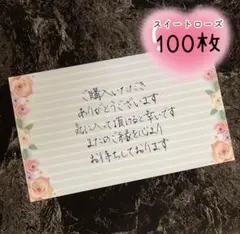 スイートローズ
100枚
ご購入いただき
ありがとうございます
気に入って頂けると幸いです
またのご縁を心より
お待ちしております